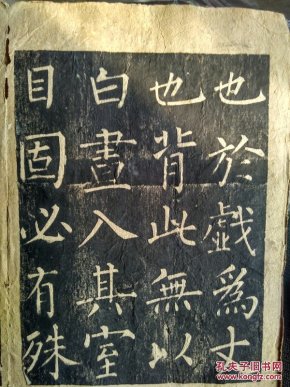 也於戯爲
也背此無以
白晝入其室
目固必有殊
孔夫子旧书网